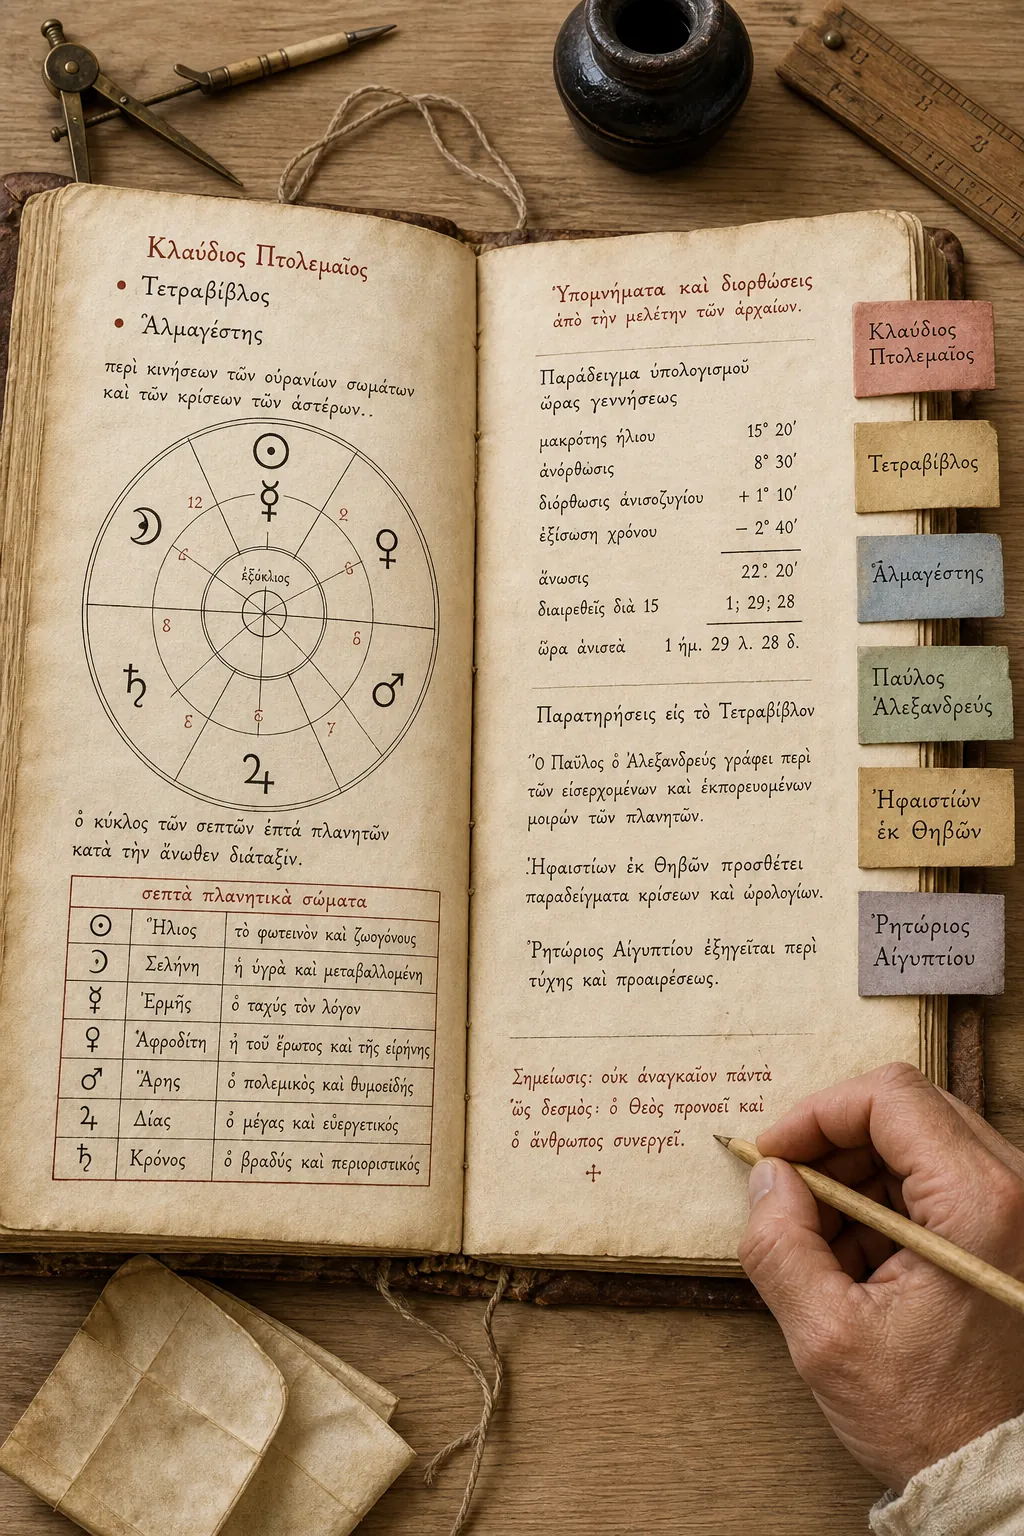 Κλαύδιος Πτολεμαῖος
• Τετραβίβλος
• Ἀλμαγέστης
περὶ κινήσεων τῶν οὐρανίων σωμάτων
καὶ τῶν κρίσεων τῶν ἀστέρων..
☉
☿
12
2
☽
♀
8
δ
ἐξύκλιος
♄
♂
ε
7
♃
ὁ κύκλος τῶν σεπτῶν ἑπτά πλανητῶν
κατὰ τὴν ἄνωθεν διάταξίν.
σεπτὰ πλανητικὰ σώματα
☉ Ἥλιος τὸ φωτεινὸν καὶ ζωογόνους
☽ Σελήνη ἡ ὑγρὰ καὶ μεταβαλλομένη
☿ Ἑρμῆς ὁ ταχύς τὸν λόγον
♀ Ἀφροδίτη ἡ τοῦ ἔρωτος καὶ τῆς εἰρήνης
♂ Ἄρης ὁ πολεμικὸς καὶ θυμοειδής
♃ Δίας ὁ μέγας καὶ εὐεργετικός
♄ Κρόνος ὁ βραδύς καὶ περιοριστικός
Ὑπομνήματα καὶ διορθώσεις
ἀπὸ τὴν μελέτην τῶν ἀρχαίων.
Παράδειγμα ὑπολογισμοῦ
ὥρας γεννήσεως
μακρότης ἡλιου 15° 20′
ἀνόρθωσις 8° 30′
διόρθωσις ἀνισοζυγίου + 1° 10′
ἐξίσωση χρόνου − 2° 40′
ἄνωσις 22° 20′
διαιρεθεῖς διὰ 15 1; 29; 28
ὥρα ἀνισεὰ 1 ἡμ. 29 λ. 28 δ.
Παρατηρήσεις εἰς τὸ Τετραβίβλον
Ὁ Παῦλος ὁ Ἀλεξανδρεύς γράφει περὶ
τῶν εἰσερχομένων καὶ ἐκπορευομένων
μοιρών τῶν πλανητῶν.
Ἡφαιστίων ἐκ Θηβῶν προσθέτει
παραδείγματα κρίσεων καὶ ὡρολογίων.
Ῥητώριος Αἰγυπτίου ἐξηγεῖται περὶ
τύχης καὶ προαιρέσεως.
Σημείωσις: οὐκ ἀναγκαῖον πάντὰ
ὥς δεσμὸς: ὁ Θεὸς προνοεῖ καὶ
ὁ ἄνθρωπος συνεργεῖ.
Κλαύδιος
Πτολεμαῖος
Τετραβίβλος
Ἀλμαγέστης
Παύλος
Ἀλεξανδρεύς
Ἡφαιστίών
ἐκ Θηβῶν
Ῥητώριος
Αἰγυπτίου